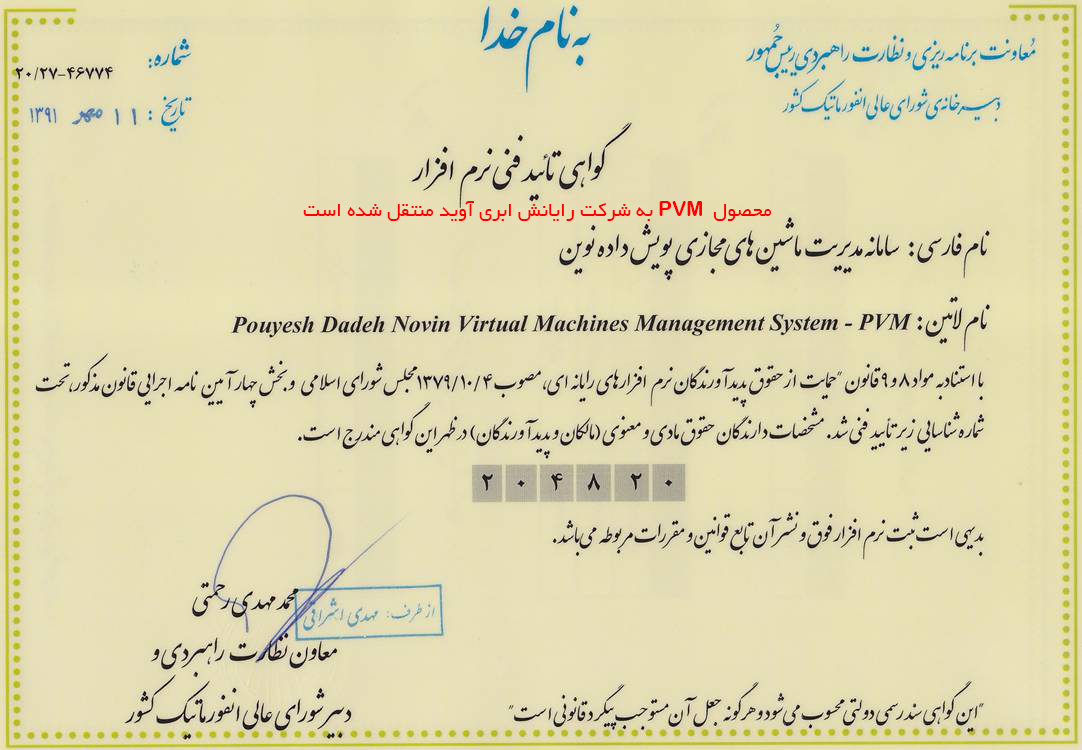 به نام خدا
معاونت برنامه ریزی و نظارت راهبردی رییس جمهور
دبیرخانه‌ی شورای عالی انفورماتیک کشور
شماره: ۲۰/۲۷-۴۶۷۷۴
تاریخ: ۱۱ مهر ۱۳۹۱
گواهی تائید فنی نرم افزار
محصول PVM به شرکت رایانش ابری آوید منتقل شده است
نام فارسی: سامانه مدیریت ماشین های مجازی پویش داده نوین
نام لاتین: Pouyesh Dadeh Novin Virtual Machines Management System - PVM
با استناد به مواد ۸ و ۹ قانون "حمایت از حقوق پدیدآورندگان نرم افزارهای رایانه ای، مصوب ۱۳۷۹/۱۰/۴ مجلس شورای اسلامی و بخش چهار آیین نامه اجرایی قانون مذکور، تحت
شماره شناسایی زیر تأیید فنی شد. مشخصات دارندگان حقوق مادی و معنوی (مالکان و پدیدآورندگان) در ظهر این گواهی مندرج است.
۲ ۰ ۴ ۸ ۲ ۰
بدیهی است ثبت نرم افزار فوق و نشر آن تابع قوانین و مقررات مربوطه می‌باشد.
محمد مهدی رحمتی
از طرف: مهدی اشراقی
معاون نظارت راهبردی و
دبیر شورای عالی انفورماتیک کشور
"این گواهی سند رسمی دولتی محسوب می شود و هرگونه جعل آن مستوجب پیگرد قانونی است"